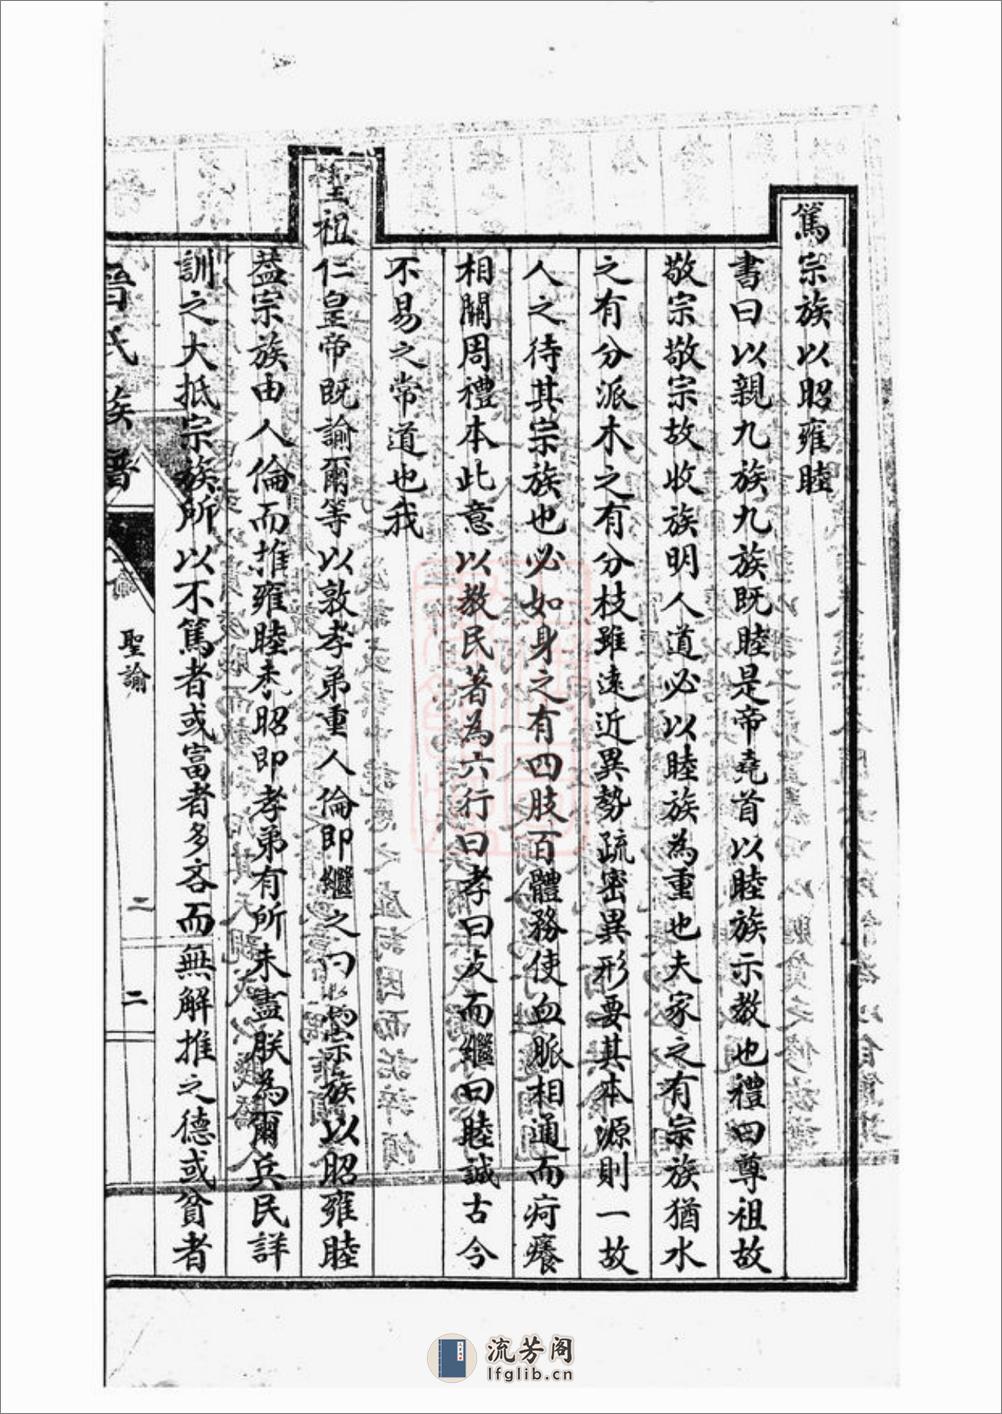 篤宗族以昭雍睦
書曰以親九族九族既睦是帝堯首以睦族示教也禮曰尊祖故
敬宗敬宗故收族明人道必以睦族為重也夫家之有宗族猶水
之有分派木之有分枝雖遠近異勢疏密異形要其本源則一故
人之待其宗族也必如身之有四肢百體務使血脈相通而疴癢
相關周禮本此意以教民著為六行曰孝曰友而繼曰睦誠古今
不易之常道也我
聖祖仁皇帝既諭爾等以敦孝弟重人倫即繼之曰篤宗族以昭雍睦
蓋宗族由人倫而推雍睦未昭即孝弟有所未盡朕為爾兵民詳
訓之大抵宗族所以不篤者或富者多吝而無解推之德或貧者
晋氏族譜
聖諭
二
二
流芳阁
lfglib.cn